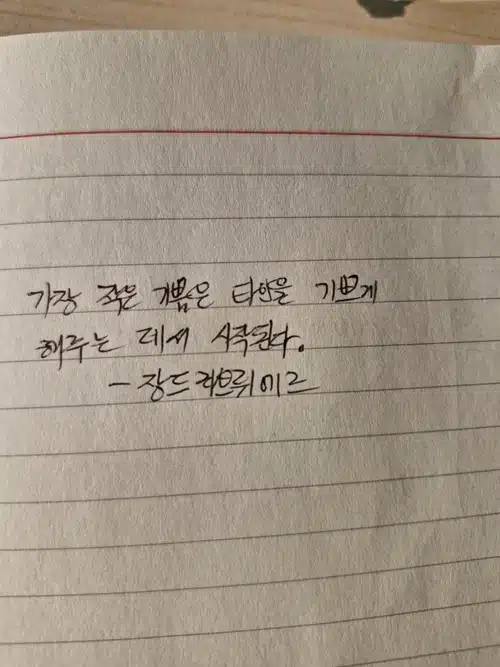 가장 작은 기쁨은 타인을 기쁘게
해주는 데서 시작된다.
- 장 드 라브뤼에르